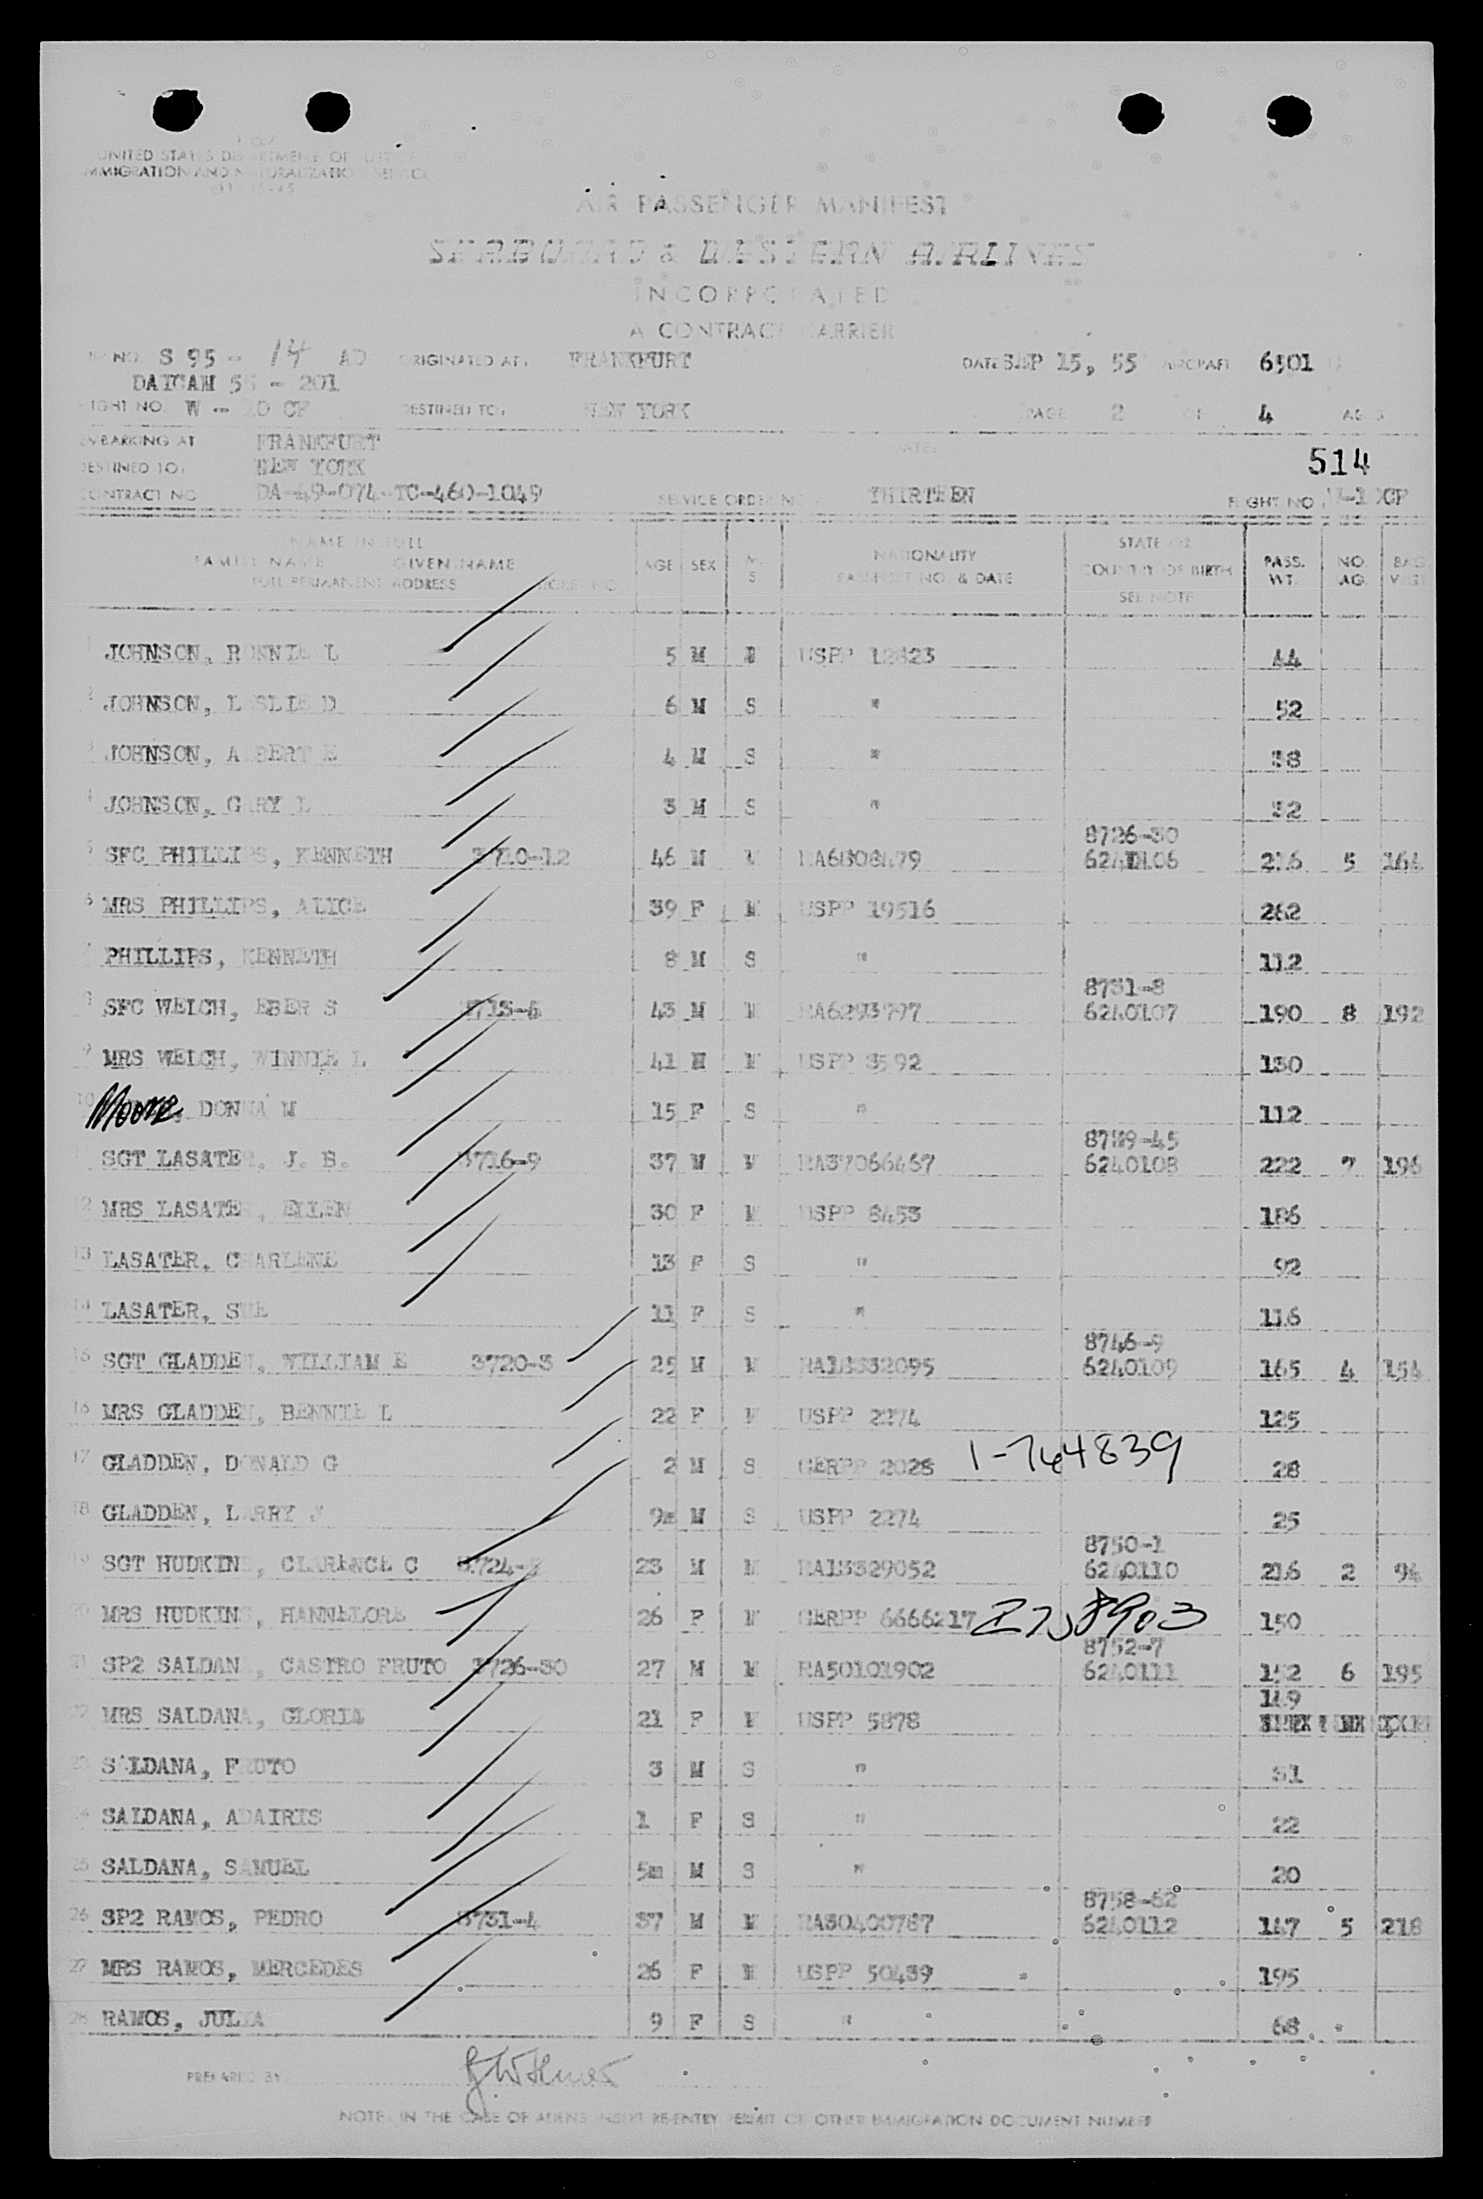 UNITED STATES DEPARTMENT OF JUSTICE
IMMIGRATION AND NATURALIZATION SERVICE
AIR PASSENGER MANIFEST
SEABOARD & WESTERN AIRLINES
INCORPORATED
A CONTRACT CARRIER
NO. S 95 - 14 AD ORIGINATED AT: FRANKFURT DATE SEP 15, 55 AIRCRAFT 6501
DAICAM 55 - 201
FLIGHT NO. W - CF DESTINED TO: NEW YORK PAGE 2 OF 4
EMBARKING AT FRANKFURT DATE:
DESTINED TO: NEW YORK 514
CONTRACT NO DA-49-074-TC-460-1049 SERVICE ORDER NO THIRTEEN FLIGHT NO
NAME IN FULL
FAMILY NAME GIVEN NAME
FULL PERMANENT ADDRESS
AGE SEX M S
NATIONALITY
PASSPORT NO. & DATE
STATE OR
COUNTRY OF BIRTH
SEE NOTE
PASS. WT. NO. BAG. BAG. WGT
1 JOHNSON, RONNIE L 5 M USPP 12823 44
2 JOHNSON, LESLIE D 6 M S " 52
3 JOHNSON, ALBERT E 4 M S " 38
4 JOHNSON, GARY L 3 M S " 32
8726-30
5 SFC PHILLIPS, KENNETH 3710-12 46 M M RA6808479 216 5 164
6 MRS PHILLIPS, ALICE 39 F M USPP 19516 262
7 PHILLIPS, KENNETH 8 M S " 112
8731-8
8 SFC WELCH, EBER S 43 M M RA6293797 6240107 190 8 192
9 MRS WELCH, WINNIE L 41 M USPP 3592 130
10 Moore, DONNA M 15 F S " 112
8739-45
SGT LASATER, J. B. 3716-9 37 M M RA37066467 6240108 222 7 196
12 MRS LASATER, EILEN 30 F M USPP 8453 186
13 LASATER, CHARLENE 13 F S " 92
14 LASATER, SUE 11 F S " 116
8746-9
15 SGT GLADDEN, WILLIAM E 3720-3 25 M M 6240109 165 4 154
16 MRS GLADDEN, BENNIE L 22 F M USPP 2274 125
17 GLADDEN, DONALD G 2 M S GERPP 2028 1-744839 28
18 GLADDEN, LARRY J 9m M S USPP 2274 25
8750-1
19 SGT HUDKINS, CLARENCE C 23 M M RA13329052 6240110 216 2 94
20 MRS HUDKINS, HANNELORE 26 F M GERPP 6666217 150
8752-7
21 SP2 SALDANA, CASTRO FRUTO 3726-30 27 M M RA50101902 6240111 152 6 195
22 MRS SALDANA, GLORIA 21 F M USPP 5878 119
23 SALDANA, FRUTO 3 M S " 31
24 SALDANA, ADAIRIS 1 F S " 22
25 SALDANA, SAMUEL 5m M S " 20
8758-62
26 SP2 RAMOS, PEDRO 3731-4 37 M M RA30400787 6240112 147 5 218
27 MRS RAMOS, MERCEDES 26 F M USPP 50439 195
28 RAMOS, JULIA 9 F S " 68
PREPARED BY
NOTE: IN THE CASE OF ALIENS INSERT RE-ENTRY PERMIT OR OTHER IMMIGRATION DOCUMENT NUMBER